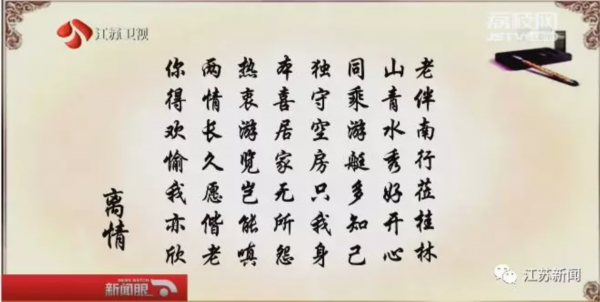 江苏卫视
荔枝网
JSTV.COM
老伴南行莅桂林
山青水秀好开心
同乘游艇多知己
独守空房只我身
本喜居家无所怨
热衷游览岂能嗔
两情长久愿偕老
你得欢愉我亦欣
离情
新闻眼
江苏新闻